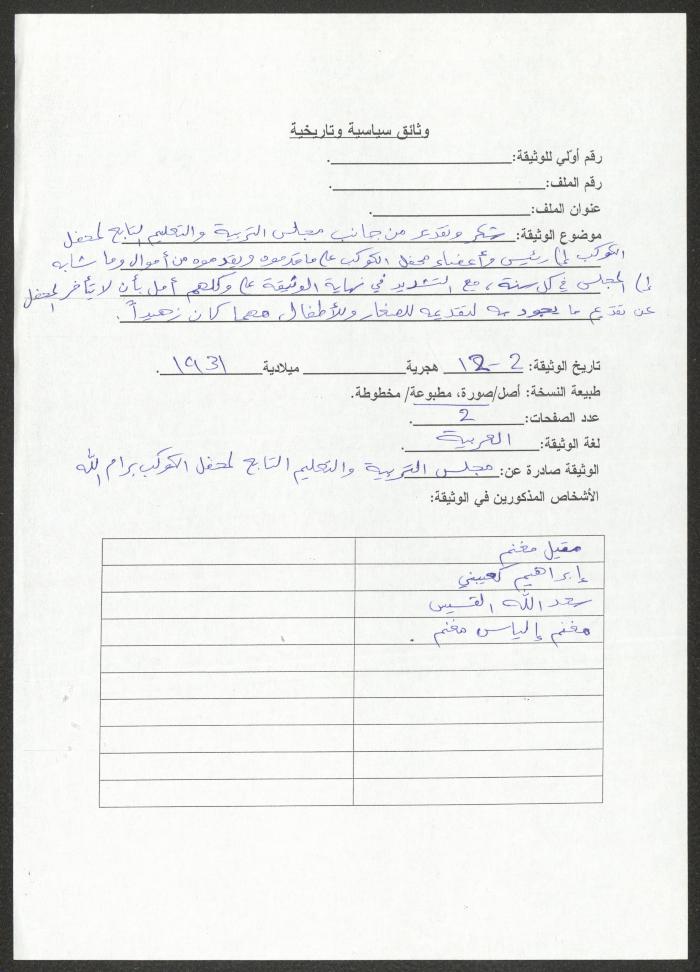 وثائق سياسية وتاريخية
رقم أولي للوثيقة: .
رقم الملف: .
عنوان الملف: .
موضوع الوثيقة: شكر وتقدير من جانب مجلس التربية والتعليم التابع لمحفل
الكوكب إلى رئيس وأعضاء محفل الكوكب على ما قدموه ويقدموه من أموال وما شابه
إلى المجلس في كل سنة، مع التشديد في نهاية الوثيقة على وكلهم أمل بأن لا يتأخر المحفل
عن تقديم ما يجود به لتقديمه للصغار وللأطفال، مهما كان زهيداً.
تاريخ الوثيقة: 2-12 هجرية ميلادية ١٩٣١.
طبيعة النسخة: أصل/صورة، مطبوعة/ مخطوطة.
عدد الصفحات: 2.
لغة الوثيقة: العربية.
الوثيقة صادرة عن: مجلس التربية والتعليم التابع لمحفل الكوكب برام الله
الأشخاص المذكورين في الوثيقة:
مقبل مغنم
إبراهيم كعيبني
سعد الله القسيس
مغنم إلياس مغنم.